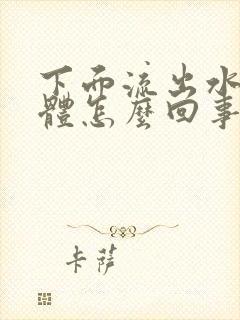 下面流出水
體怎麼回事
卡薩